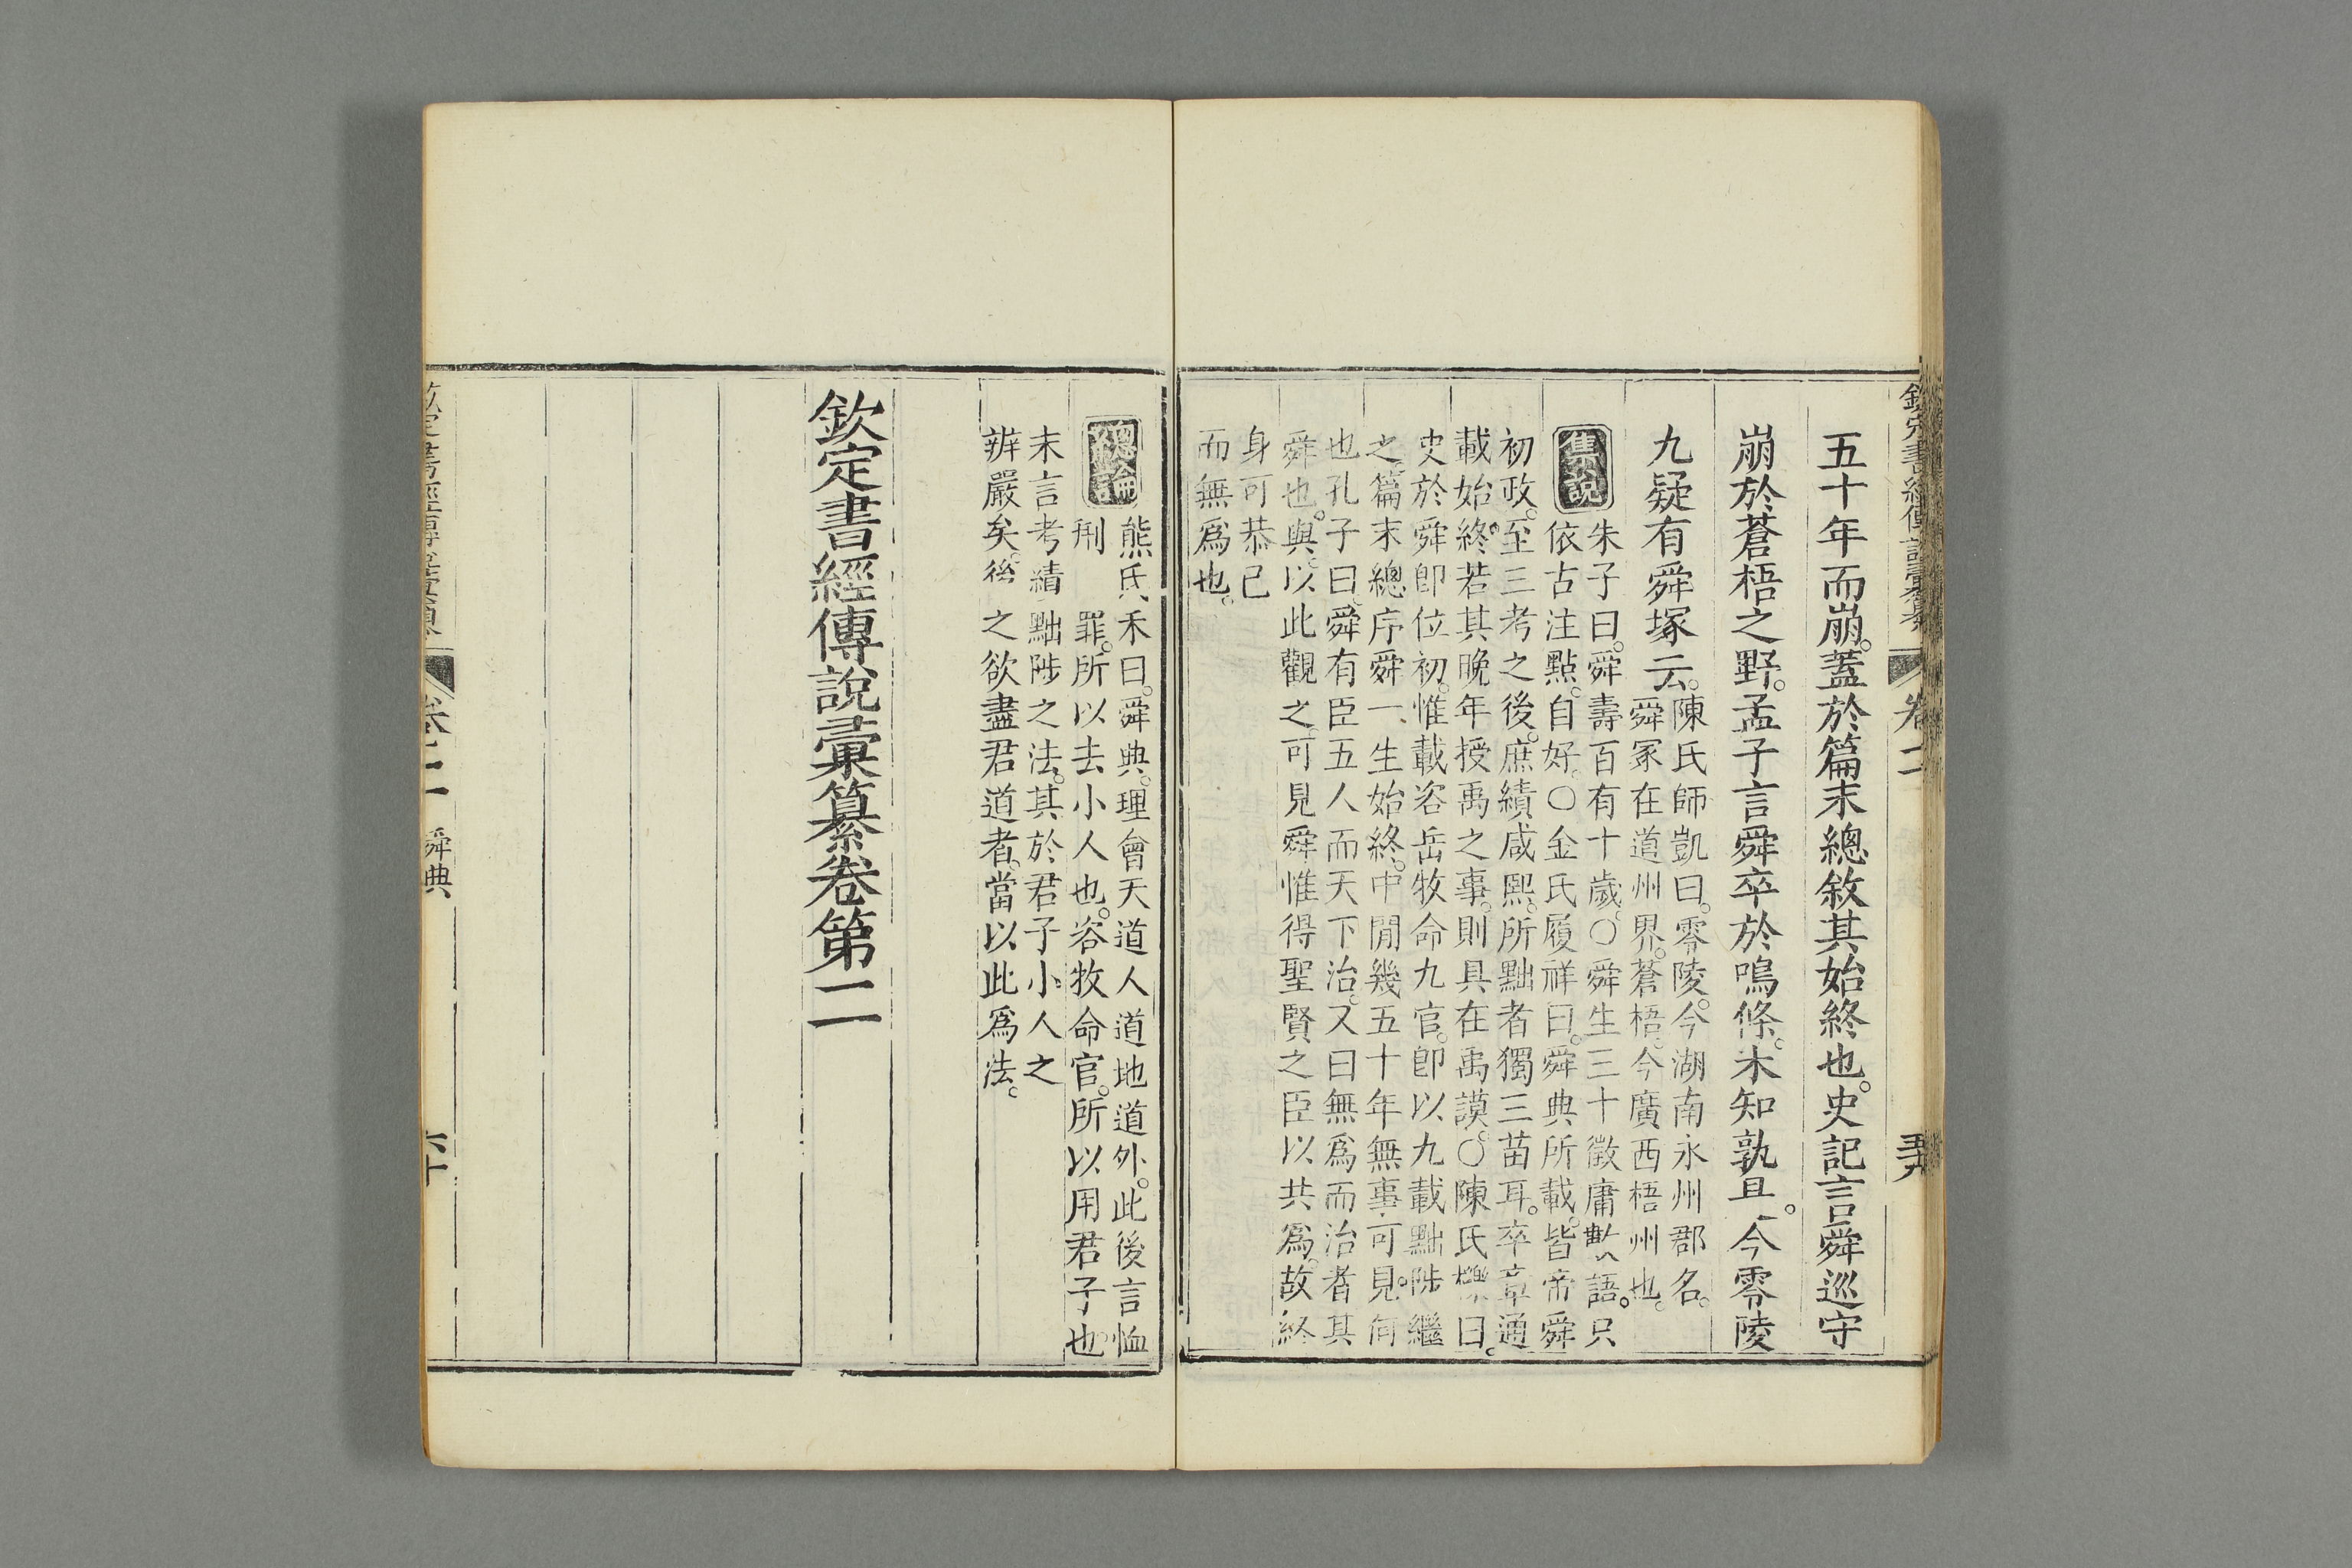 欽定書經傳說彙纂 卷二 五十九
五十年而崩。蓋於篇末總敘其始終也。史記言舜巡守
崩於蒼梧之野。孟子言舜卒於鳴條。未知孰是。今零陵
九疑有舜塚云。
陳氏師凱曰。零陵。今湖南永州郡名。
舜冢在道州界。蒼梧。今廣西梧州也。
集說
朱子曰。舜壽百有十歲。○舜生三十徵庸數語。只
依古注點。自好。○金氏履祥曰。舜典所載。皆帝舜
初政。至三考之後。庶績咸熙。所黜者獨三苗耳。卒章通
載始終。若其晚年授禹之事。則具在禹謨。○陳氏櫟曰。
史於舜卽位初。惟載咨岳牧命九官。卽以九載黜陟繼
之。篇末總序舜一生始終。中閒幾五十年無事可見。何
也。孔子曰。舜有臣五人而天下治。又曰無爲而治者其
舜也與。以此觀之。可見舜惟得聖賢之臣以共爲。故終
身可恭己
而無爲也。
總論
熊氏禾曰。舜典。理會天道人道地道外。此後言恤
刑 罪。所以去小人也。咨牧命官。所以用君子也。
末言考績黜陟之法。其於君子小人之
辨嚴矣。後 之欲盡君道者。當以此爲法。
欽定書經傳說彙纂卷第二
欽定書經傳說彙纂 卷二 舜典 六十